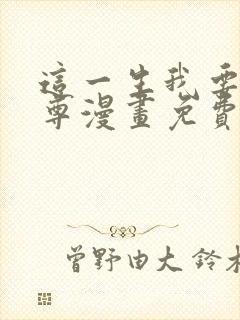 這一生我要
尊漫畫免費
曾野由大 鈴木